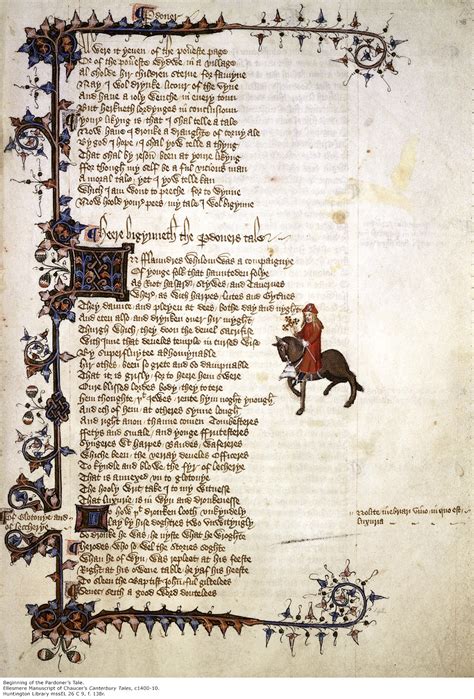 Pardoner
Al were it yeven of the povereste page
Or of the povereste wydwe in a village
Al sholde hir children sterve for famyne
Nay I wol drynke licour of the vyne
And have a ioly wenche in every toun
But herkneth lordynges in conclusioun
Youre likyng is that I shal telle a tale
Now have I dronke a draughte of corny ale
By god I hope I shal yow telle a thyng
That shal by reson been at youre likyng
For though my self be a ful vicious man
A moral tale yet I yow telle kan
Which I am wont to preche for to wynne
Now hoold youre pees my tale I wol bigynne
Heere bigynneth the Pardoners tale
In Flaundres whilom was a compaignye
Of yonge folk that haunteden folye
As riot hasard stywes and Tavernes
Where as with harpes lutes and Gyternes
They daunce and pleyen at dees bothe day and nyght
And eten also and drynken over hir myght
Thurgh which they doon the devel sacrifise
With Inne that develes temple in cursed wise
By superfluytee abhomynable
Hir othes been so grete and so dampnable
That it is grisly for to heere hem swere
Oure blissed lordes body they to tere
Hem thoughte that Iewes rente hym noght ynough
And ech of hem at otheres synne lough
And right anon thanne comen Tombesteres
Fetys and smale and yonge frutesteres
Syngeres with harpes Baudes wafereres
Whiche been the verray develes officeres
To kyndle and blowe the fyr of lecherye
That is annexed un to glotonye
The holy writ take I to my witnesse
That luxurie is in wyn and dronkenesse
Of glotonye and of leccherye
Nolite inebriari vino in quo est luxuria
Lo how that dronken looth unkyndely
Lay by hise doghtres two unwityngly
So dronke he was he nyste what he wroghte
Herodes who so wel the stories soghte
Whan he of wyn was repleet at his feeste
Right at his owene table he yaf his heeste
To sleen the Baptist Iohn ful giltelees
Senec seith a good word doutelees
Beginning of the Pardoner's Tale.
Ellesmere Manuscript of Chaucer's Canterbury Tales, c1400-10.
Huntington Library mssEL 26 C 9, f. 138r.